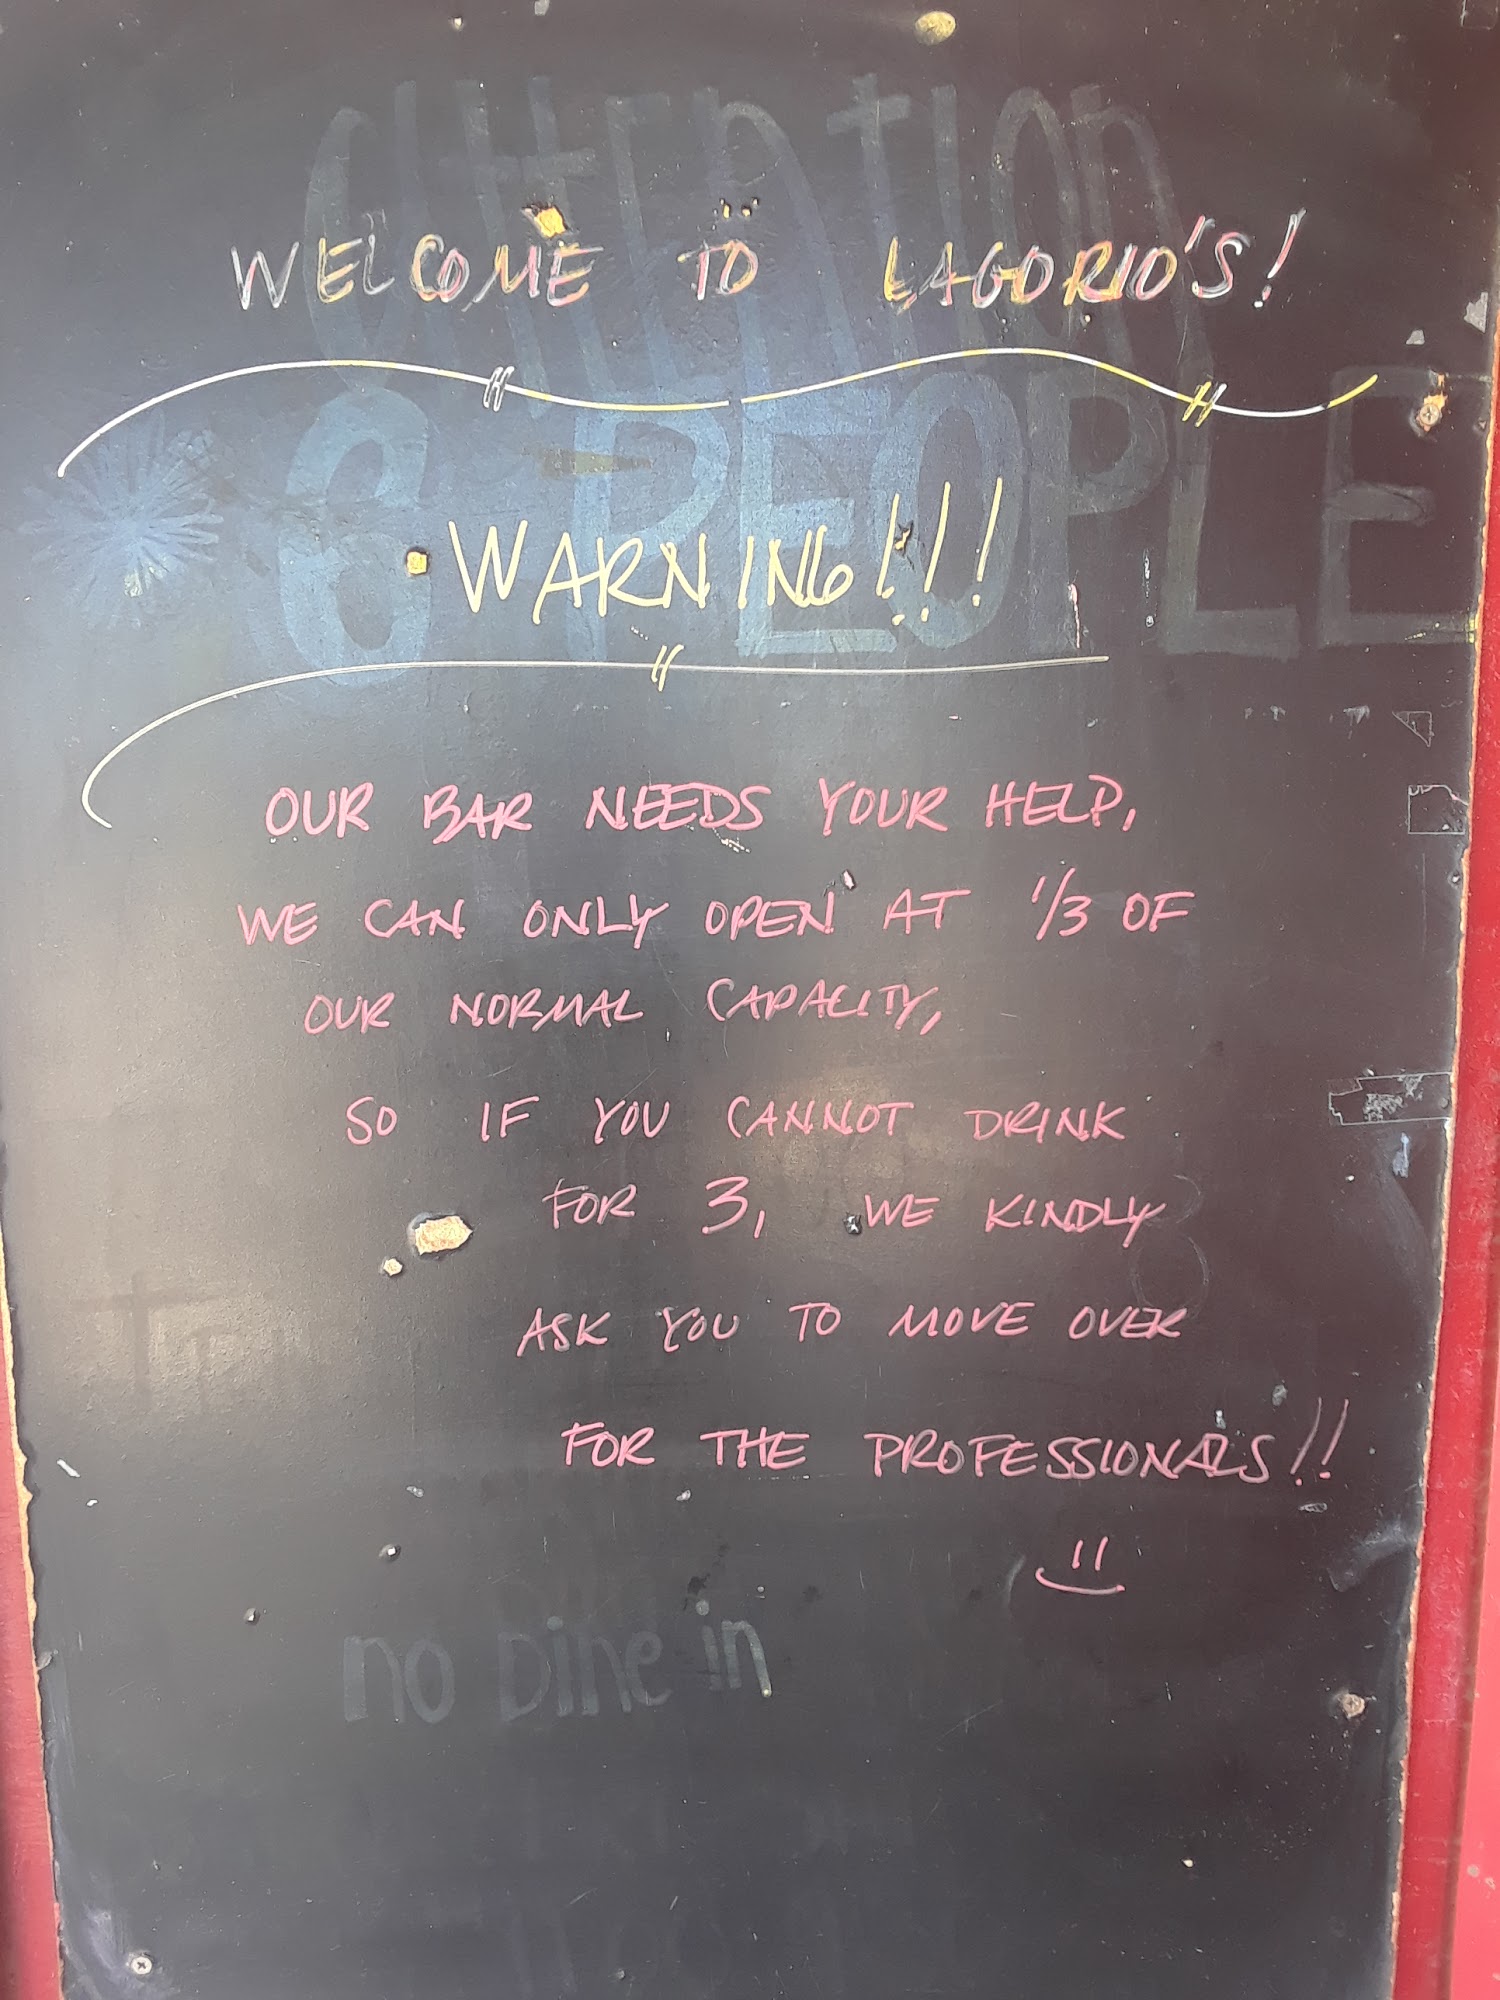 ATTENTION
WELCOME TO LAGORIO'S!
6 PEOPLE
WARNING!!!
OUR BAR NEEDS YOUR HELP,
WE CAN ONLY OPEN AT 1/3 OF
OUR NORMAL CAPACITY,
SO IF YOU CANNOT DRINK
FOR 3, WE KINDLY
ASK YOU TO MOVE OVER
FOR THE PROFESSIONALS!!
no Dine in